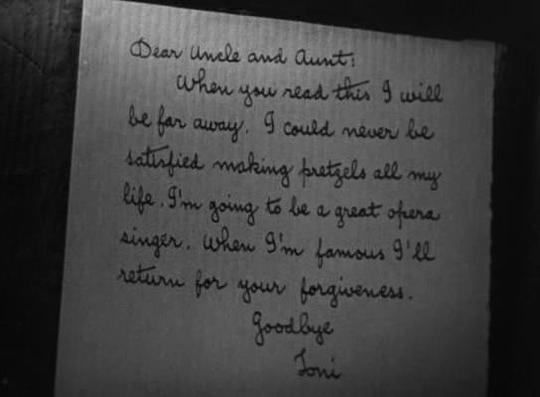 Dear Uncle and Aunt:
When you read this I will
be far away. I could never be
satisfied making pretzels all my
life. I'm going to be a great opera
singer. When I'm famous I'll
return for your forgiveness.
Goodbye
Toni